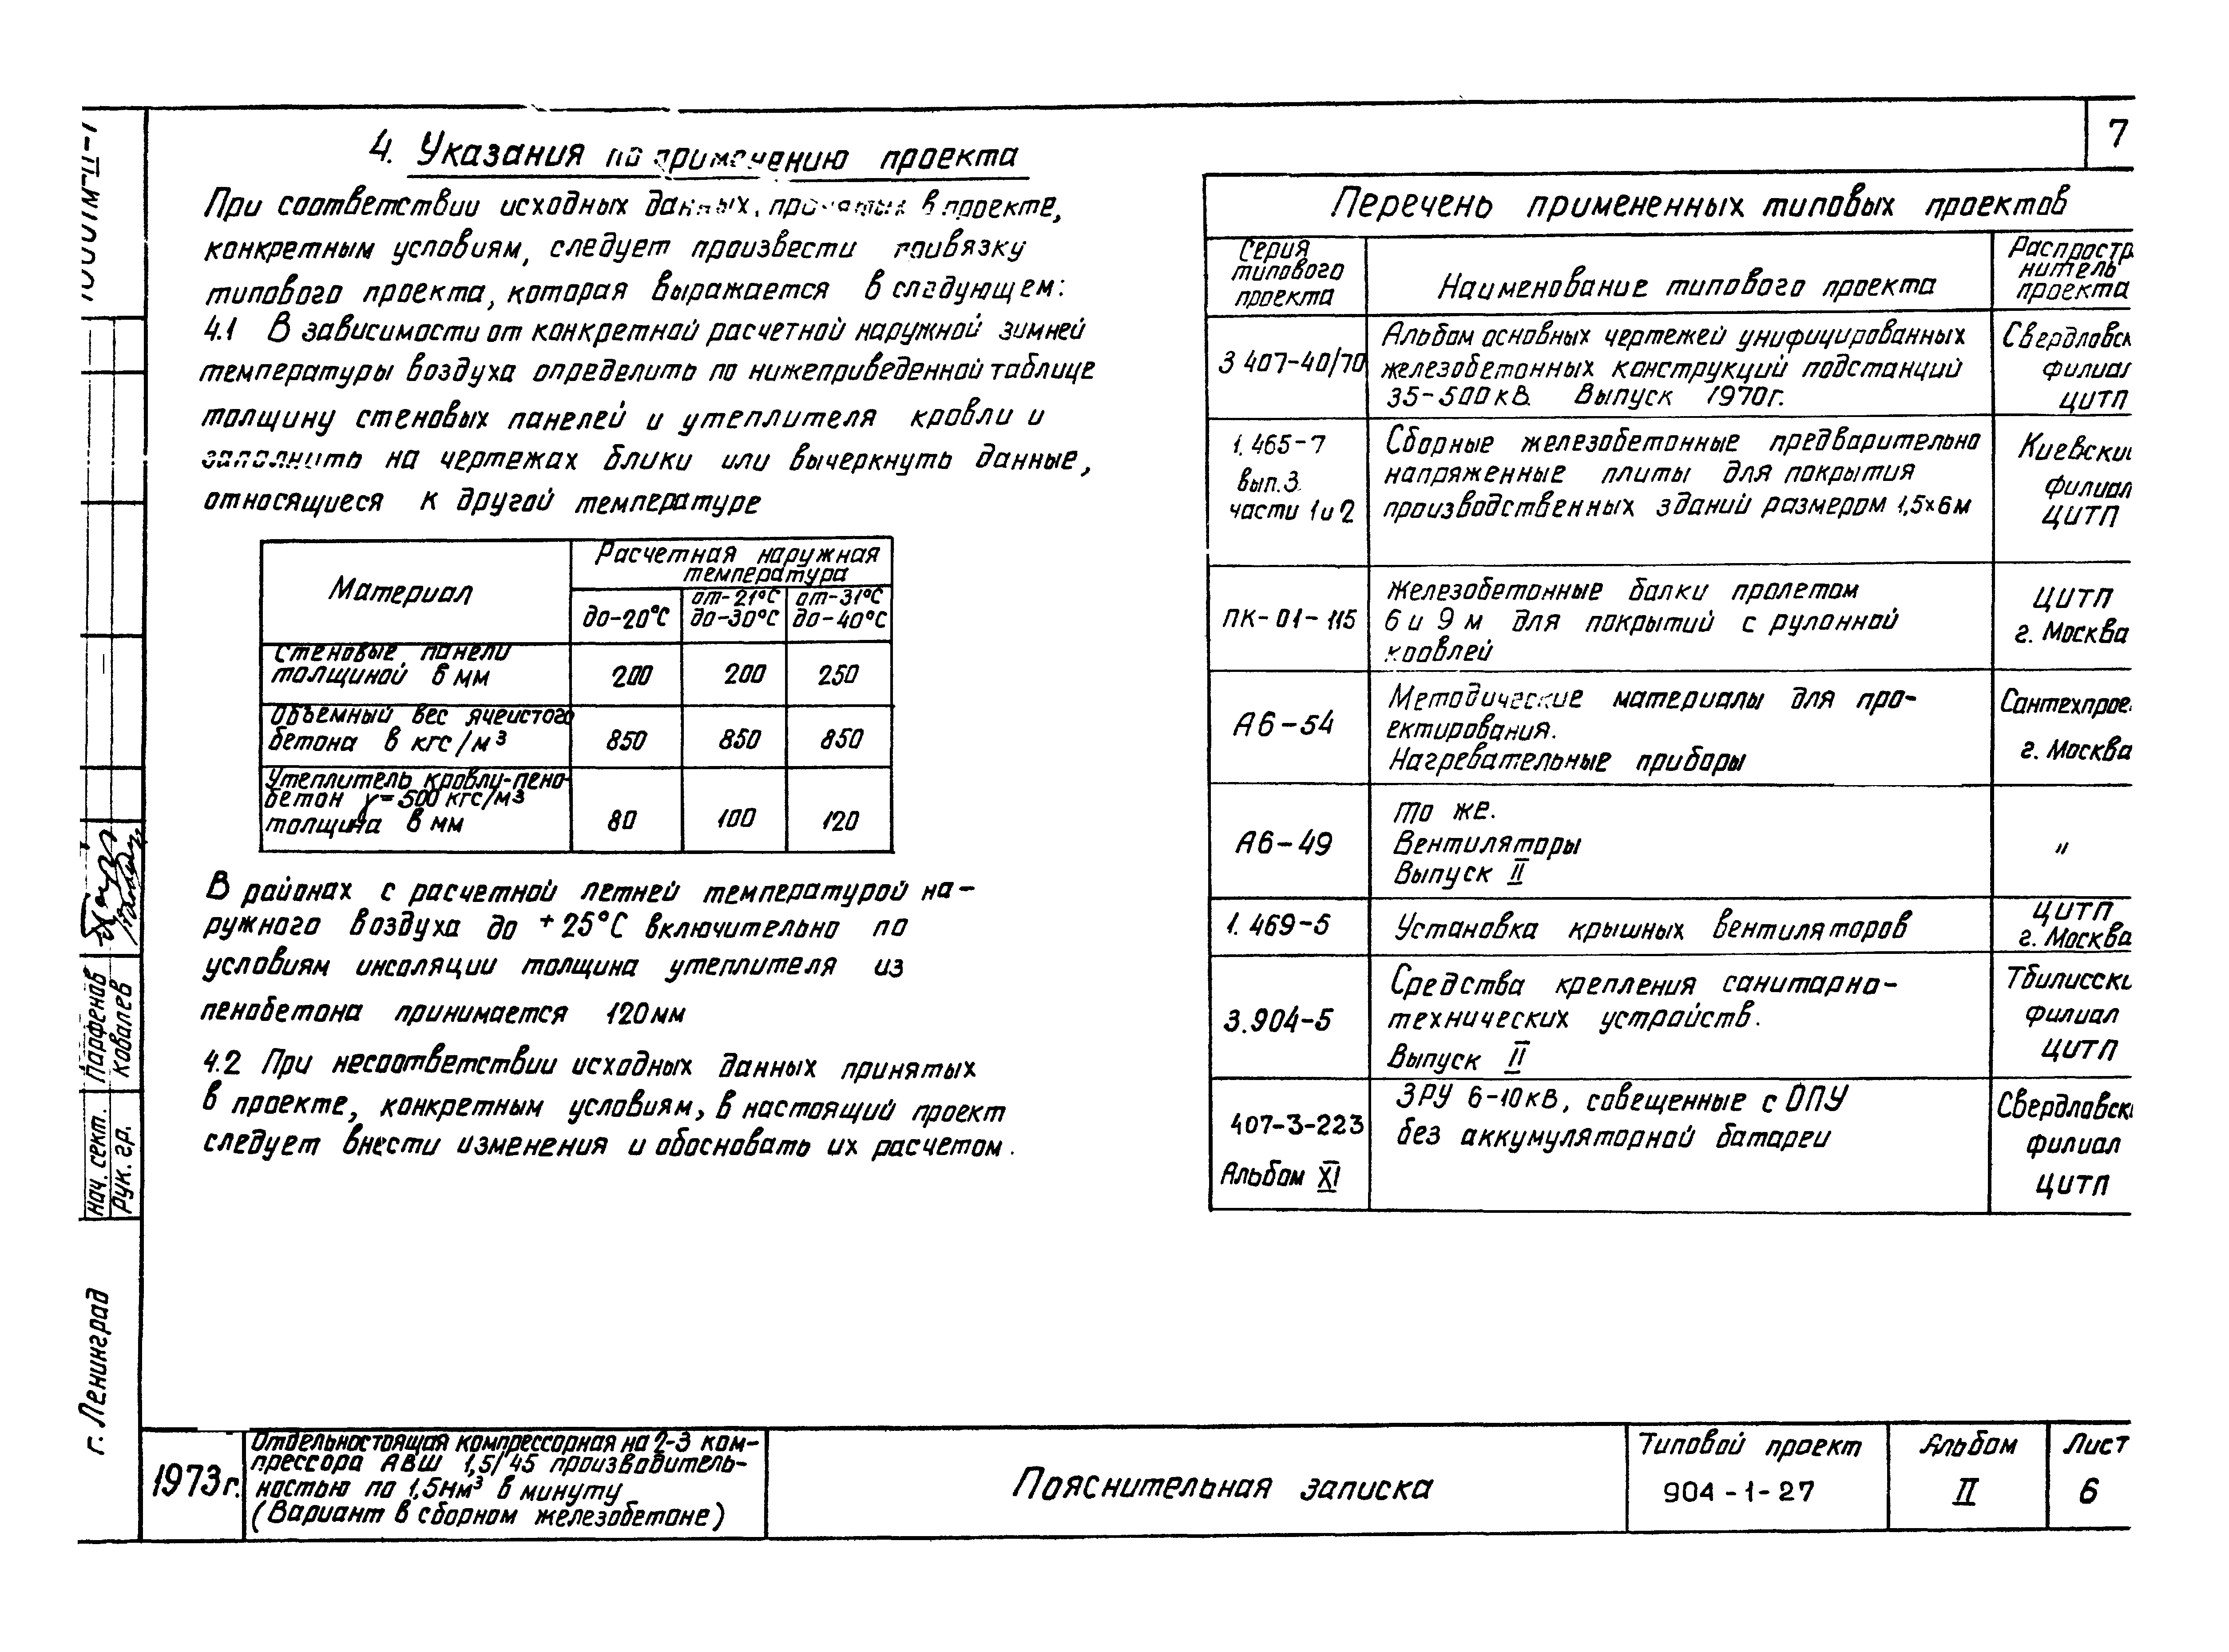 7
4. Указания по применению проекта
При соответствии исходных данных, принятых в проекте,
конкретным условиям, следует произвести привязку
типового проекта, которая выражается в следующем:
4.1 В зависимости от конкретной расчетной наружной зимней
температуры воздуха определить по нижеприведенной таблице
толщину стеновых панелей и утеплителя кровли и
заполнить на чертежах блики или вычеркнуть данные,
относящиеся к другой температуре
Материал
Расчетная наружная
температура
до-20°С
от-21°С
до-30°С
от-31°С
до-40°С
Стеновые панели
толщиной в мм
200 200 250
Объемный вес ячеистого
бетона в кгс/м³
850 850 850
Утеплитель кровли-пено-
бетон γ=500 кгс/м3
толщина в мм
80 100 120
В районах с расчетной летней температурой на-
ружного воздуха до +25°С включительно по
условиям инсоляции толщина утеплителя из
пенобетона принимается 120мм
4.2 При несоответствии исходных данных принятых
в проекте, конкретным условиям, в настоящий проект
следует внести изменения и обосновать их расчетом.
Перечень примененных типовых проектов
Серия
типового
проекта
Наименование типового проекта
Распростр
нитель
проекта
3 407-40/70
Альбом основных чертежей унифицированных
железобетонных конструкций подстанций
35-500кВ. Выпуск 1970г.
Свердловск
филиал
ЦИТП
1. 465-7
вып.3.
части 1и2
Сборные железобетонные предварительно
напряженные плиты для покрытия
производственных зданий размером 1,5×6м
Киевский
филиал
ЦИТП
ПК-01-115
Железобетонные балки пролетом
6 и 9 м для покрытий с рулонной
кровлей
ЦИТП
г. Москва
А6-54
Методические материалы для про-
ектирования.
Нагревательные приборы
Сантехпрое
г. Москва
А6-49
То же.
Вентиляторы
Выпуск II
"
1. 469-5
Установка крышных вентиляторов
ЦИТП
г. Москва
3.904-5
Средства крепления санитарно-
технических устройств.
Выпуск II
Тбилисски
филиал
ЦИТП
407-3-223
Альбом XI
ЗРУ 6-10кВ, совещенные с ОПУ
без аккумуляторной батареи
Свердловск
филиал
ЦИТП
Нач. сект. Парфенов
Рук. гр. Ковалев
г. Ленинград
1973г.
Отдельностоящая компрессорная на 2-3 ком-
прессора АВШ 1,5/45 производитель-
ностью по 1,5нм³ в минуту
(Вариант в сборном железобетоне)
Пояснительная записка
Типовой проект
904-1-27
Альбом
II
Лист
6